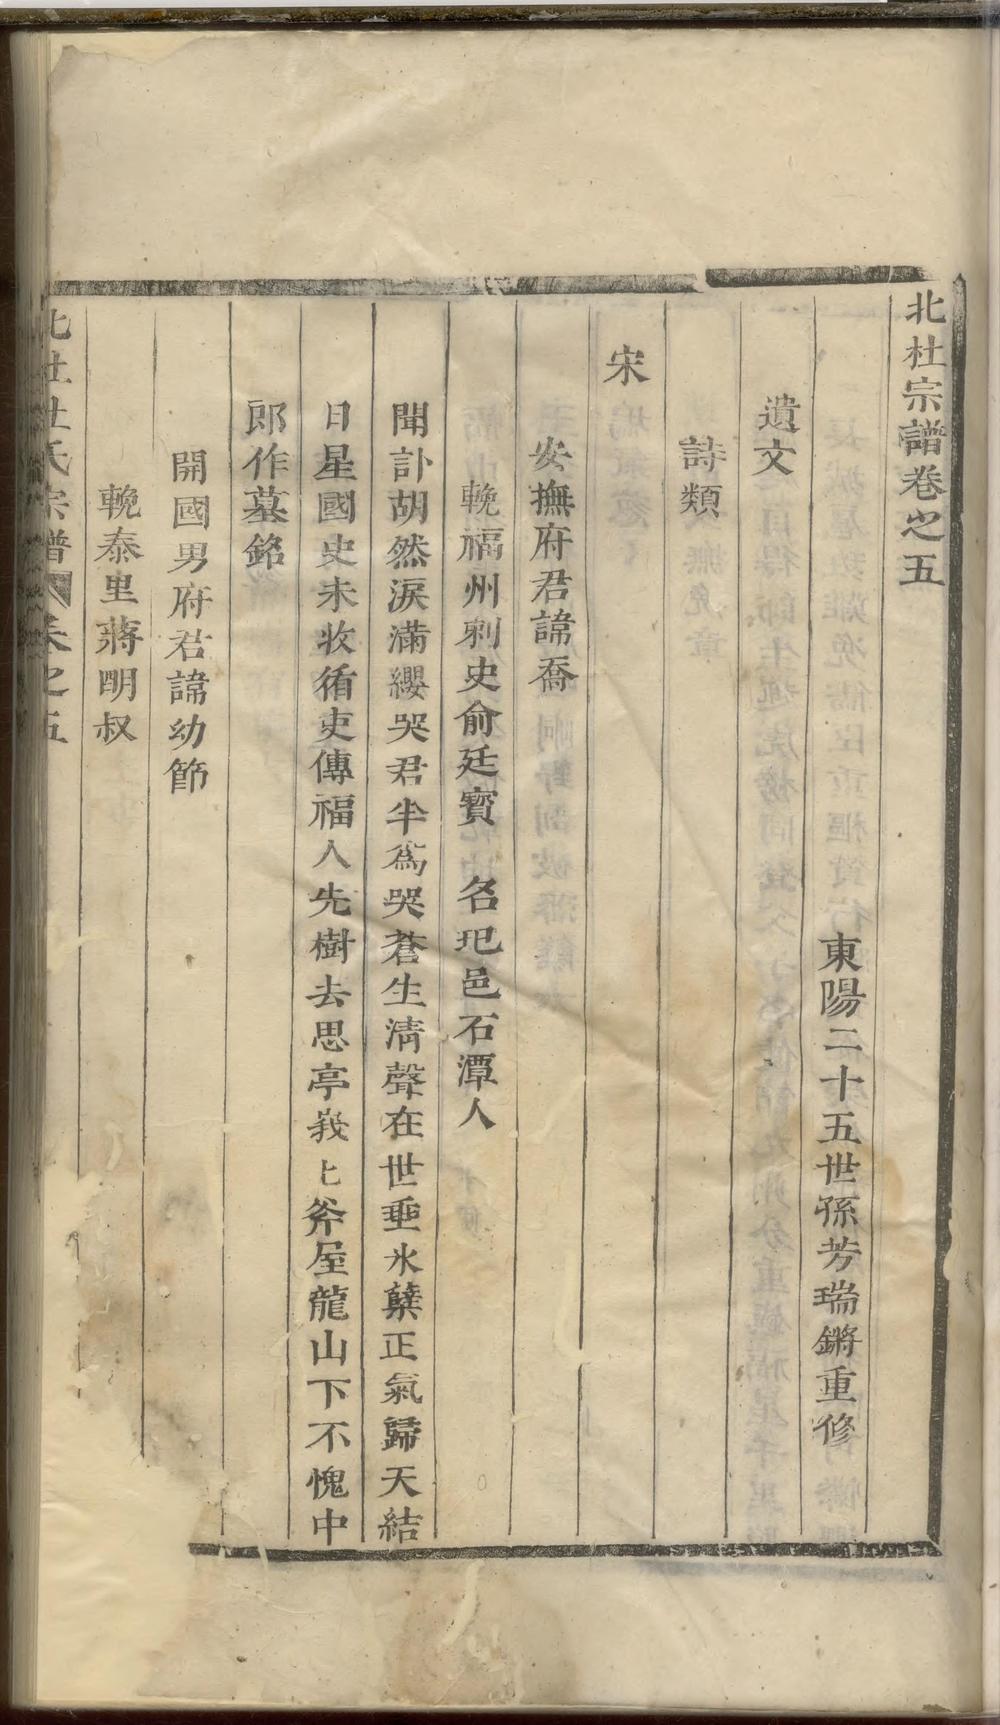 北杜宗譜卷之五
東陽二十五世孫芳瑞鏘重修
遺文
詩類
宋
安撫府君諱喬
輓福州刺史俞廷寶　名玘邑石潭人
聞訃胡然淚滿纓哭君半爲哭蒼生清聲在世垂氷蘖正氣歸天結
日星國史未收循吏傳福人先樹去思亭峩匕斧屋龍山下不愧中
郎作墓銘
開國男府君諱幼節
輓泰里蔣明叔
北杜杜氏宗譜　卷之五